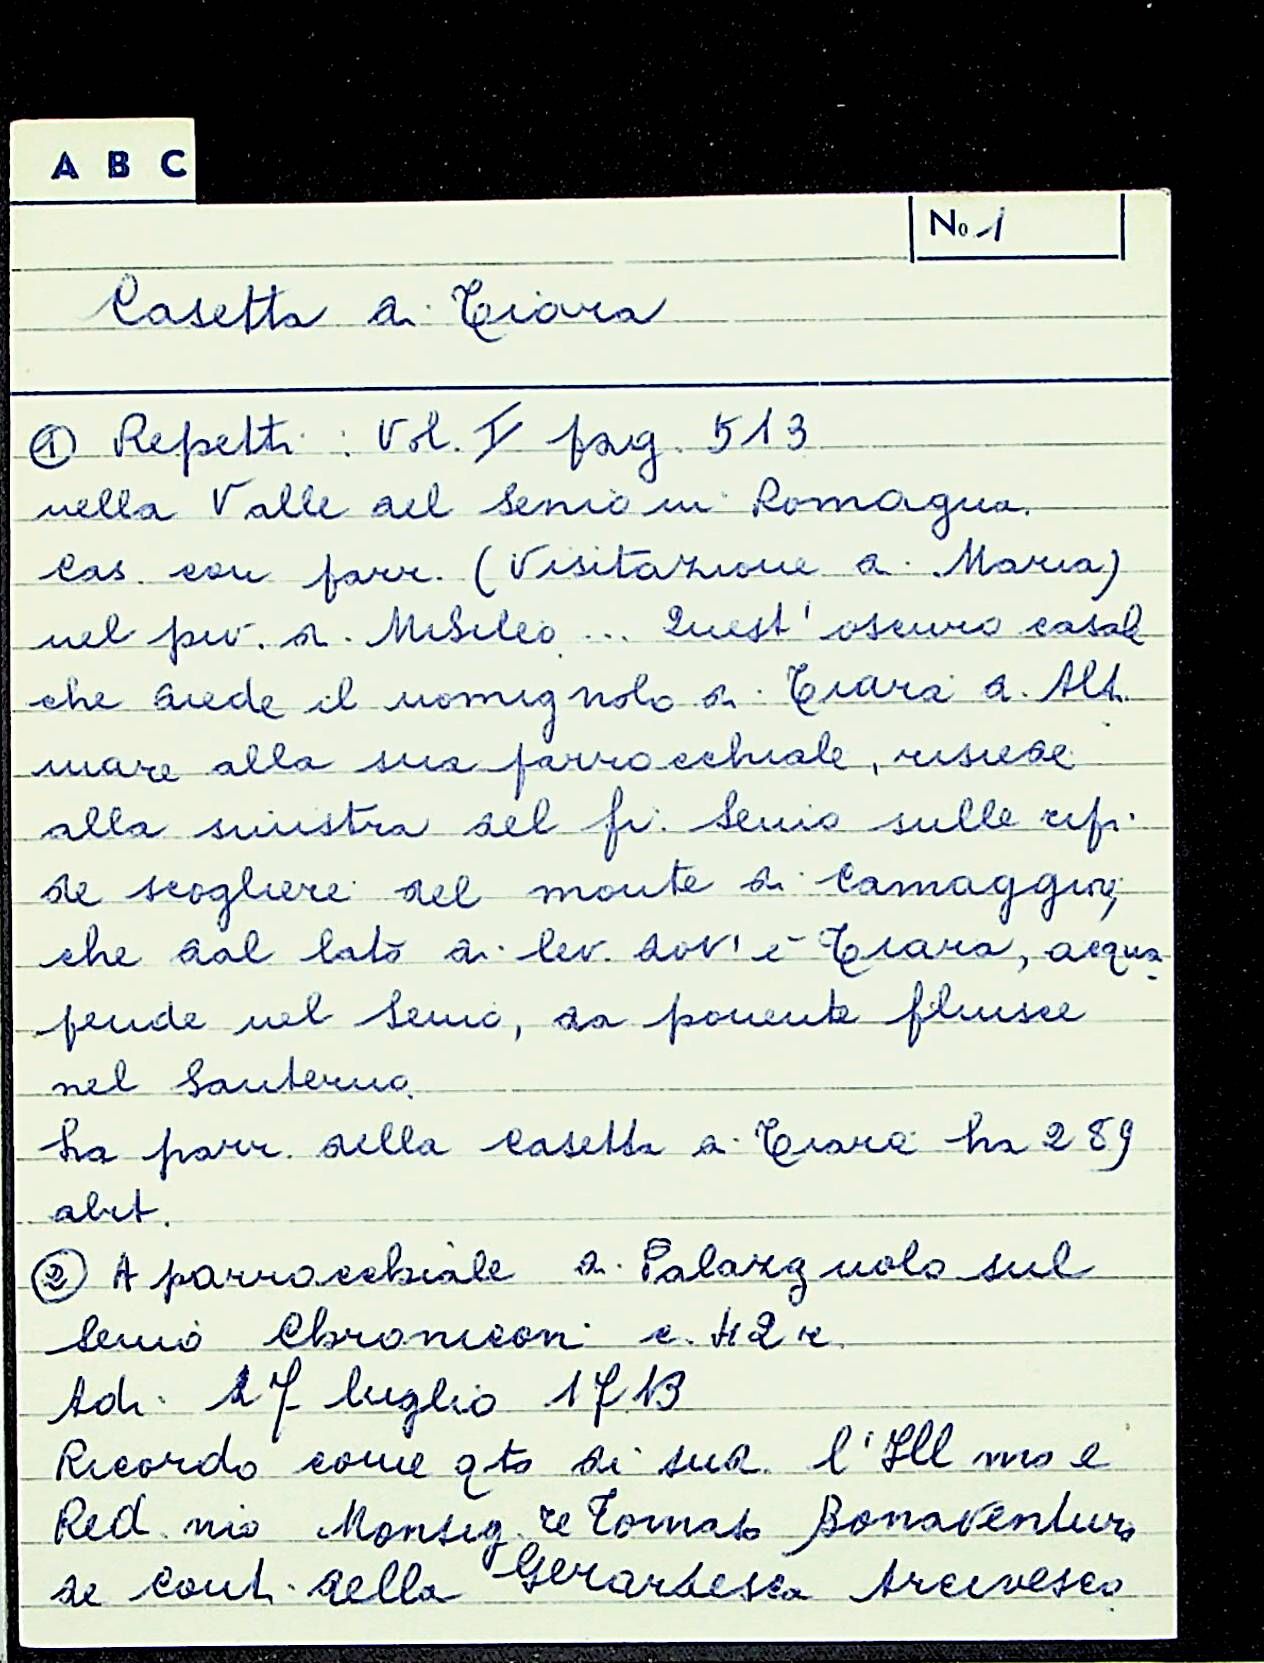 A B C
No 1
Casetta di Tiara
① Repetti : Vol. I pag. 513
nella Valle del Senio in Romagna.
Cas. con parr. (Visitazione di Maria)
nel piv. di Misileo ... Quest' oscuro casale
che diede il nomignolo di Tiara di Alt.
mare alla sua parrocchiale, risiede
alla sinistra del fi. Senio sulle ripi-
de scogliere del monte di Camaggiore,
che dal lato di lev. dov' è Tiara, acqua
pende nel Senio, da ponente fluisce
nel Santerno.
La parr. della Casetta di Tiara ha 289
abit.
② A parrocchiale di Palazzuolo sul
Senio Chronicon c. 42 r.
Adi. 27 luglio 1713
Ricordo come qto di sud. l'Ill mo e
Red. mo Monsig. re Tomaso Bonaventura
de Conti della Gerardesca Arcivesco